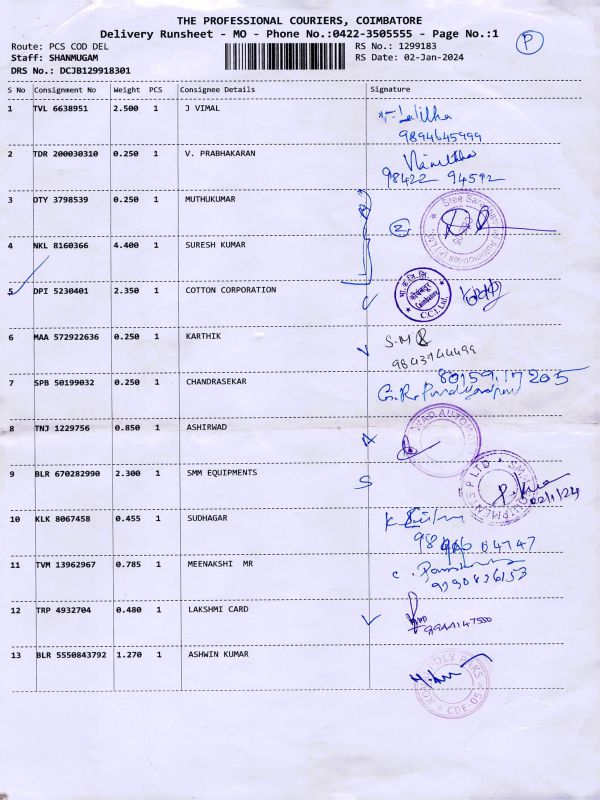 THE PROFESSIONAL COURIERS, COIMBATORE
Delivery Runsheet - MO - Phone No.:0422-3505555 - Page No.:1
P
Route: PCS COD DEL
RS No.: 1299183
Staff: SHANMUGAM
RS Date: 02-Jan-2024
DRS No.: DCJB129918301
S No Consignment No Weight PCS Consignee Details Signature
1 TVL 6638951 2.500 1 J VIMAL
9894645999
2 TDR 200030310 0.250 1 V. PRABHAKARAN
98422 94592
3 OTY 3798539 0.250 1 MUTHUKUMAR
2
4 NKL 8160366 4.400 1 SURESH KUMAR
5 DPI 5230401 2.350 1 COTTON CORPORATION
C.C.I. Ltd.
6 MAA 572922636 0.250 1 KARTHIK
S.M
9843744499
7 SPB 50199032 0.250 1 CHANDRASEKAR
80159 17205
8 TNJ 1229756 0.850 1 ASHIRWAD
9 BLR 670282990 2.300 1 SMM EQUIPMENTS
02/1/24
10 KLK 8067458 0.455 1 SUDHAGAR
04747
11 TVM 13962967 0.785 1 MEENAKSHI MR
12 TRP 4932704 0.480 1 LAKSHMI CARD
13 BLR 5550843792 1.270 1 ASHWIN KUMAR
CBE-05